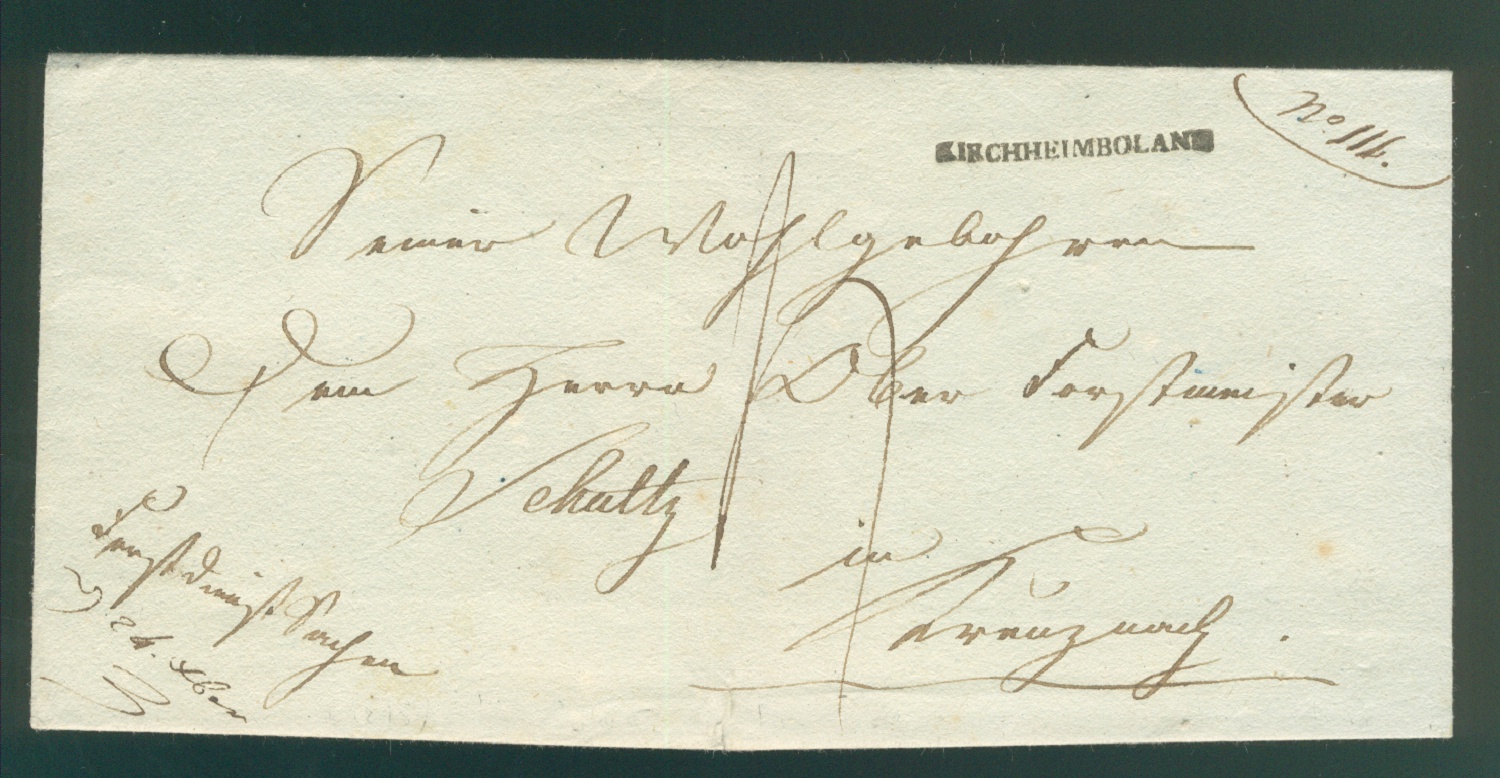 KIRCHHEIMBOLAND
No. 111.
Seiner Wohlgebohren
Dem Herrn Ober Forstmeister
Schultz
in
Kreuznach.
Forstdienst Sachen
24. Xber